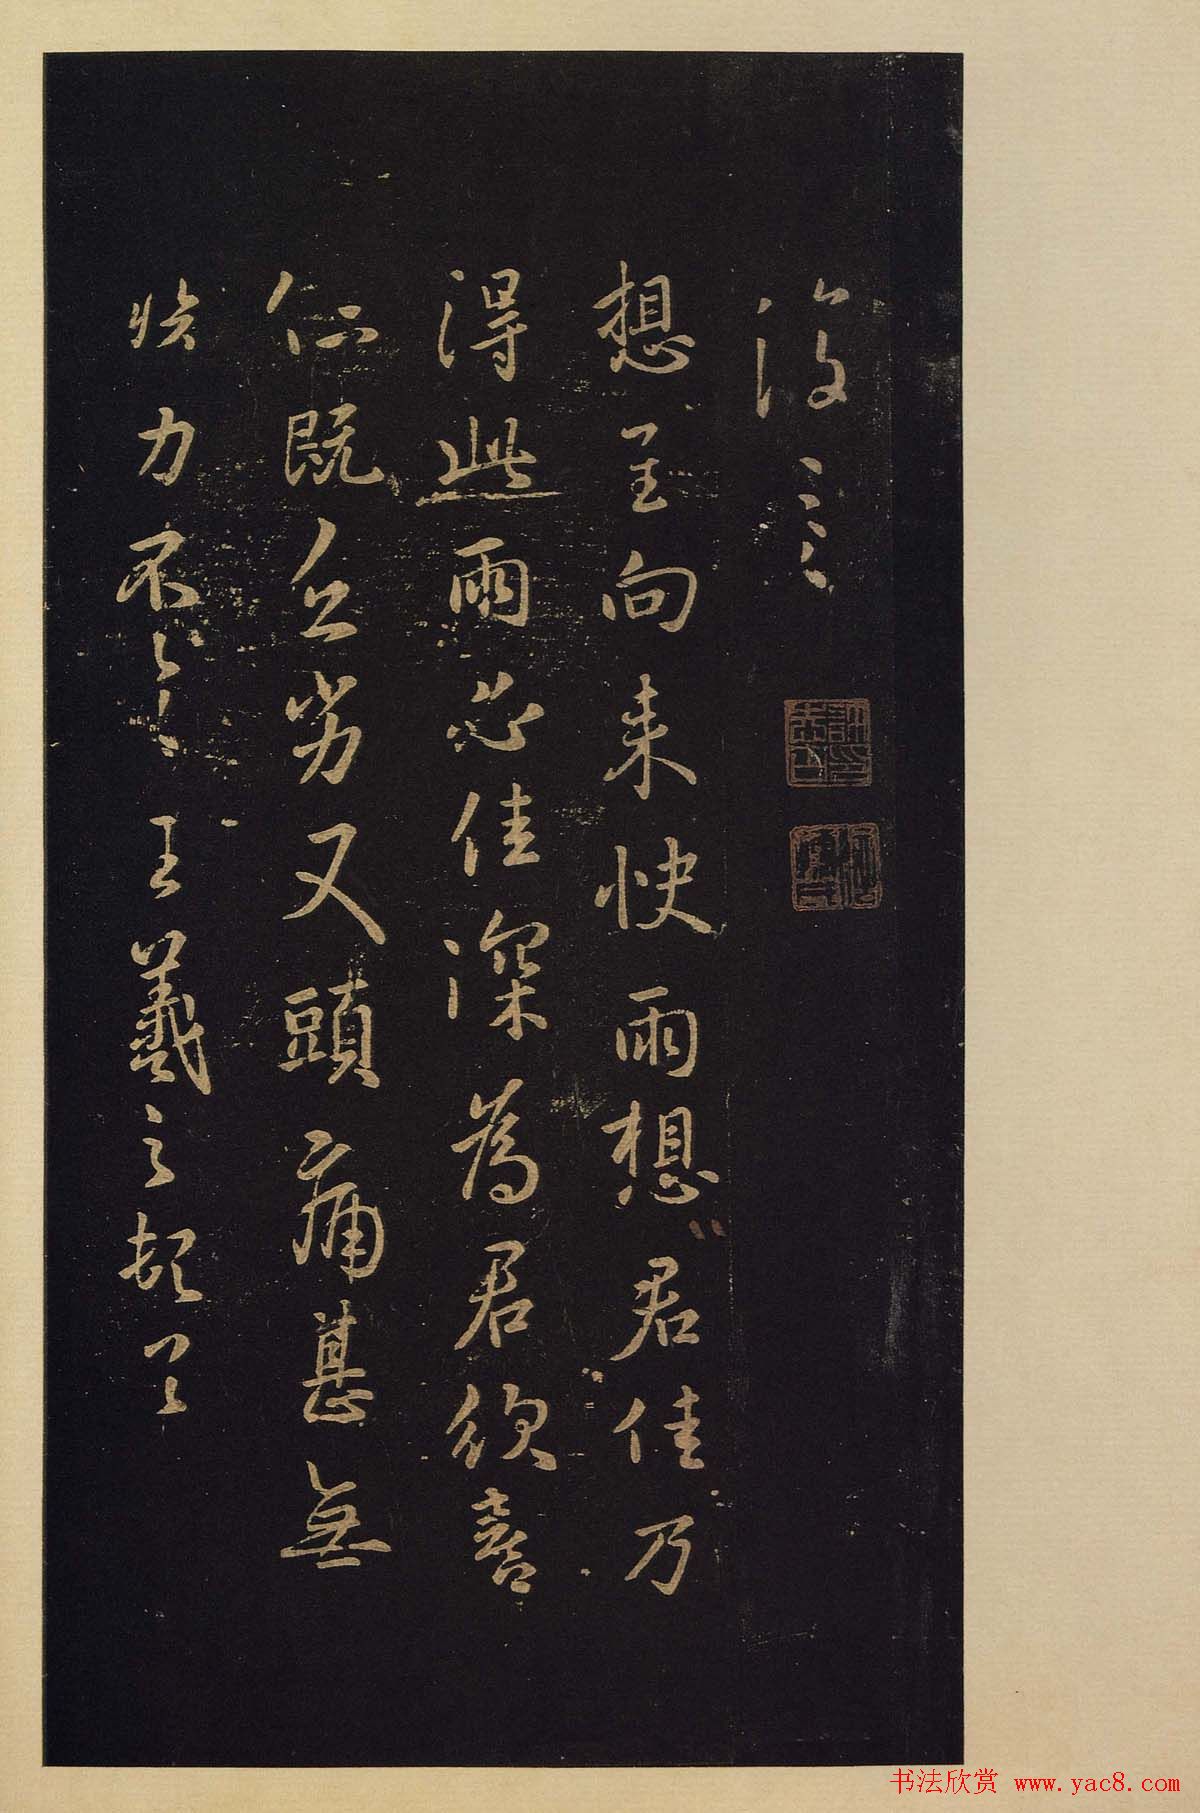 復
想至向来快雨想君佳乃
得此雨佳深為君欣喜
既乏劣又頭痛甚無
力不一一王羲之頓首
书法欣赏 www.yac8.com